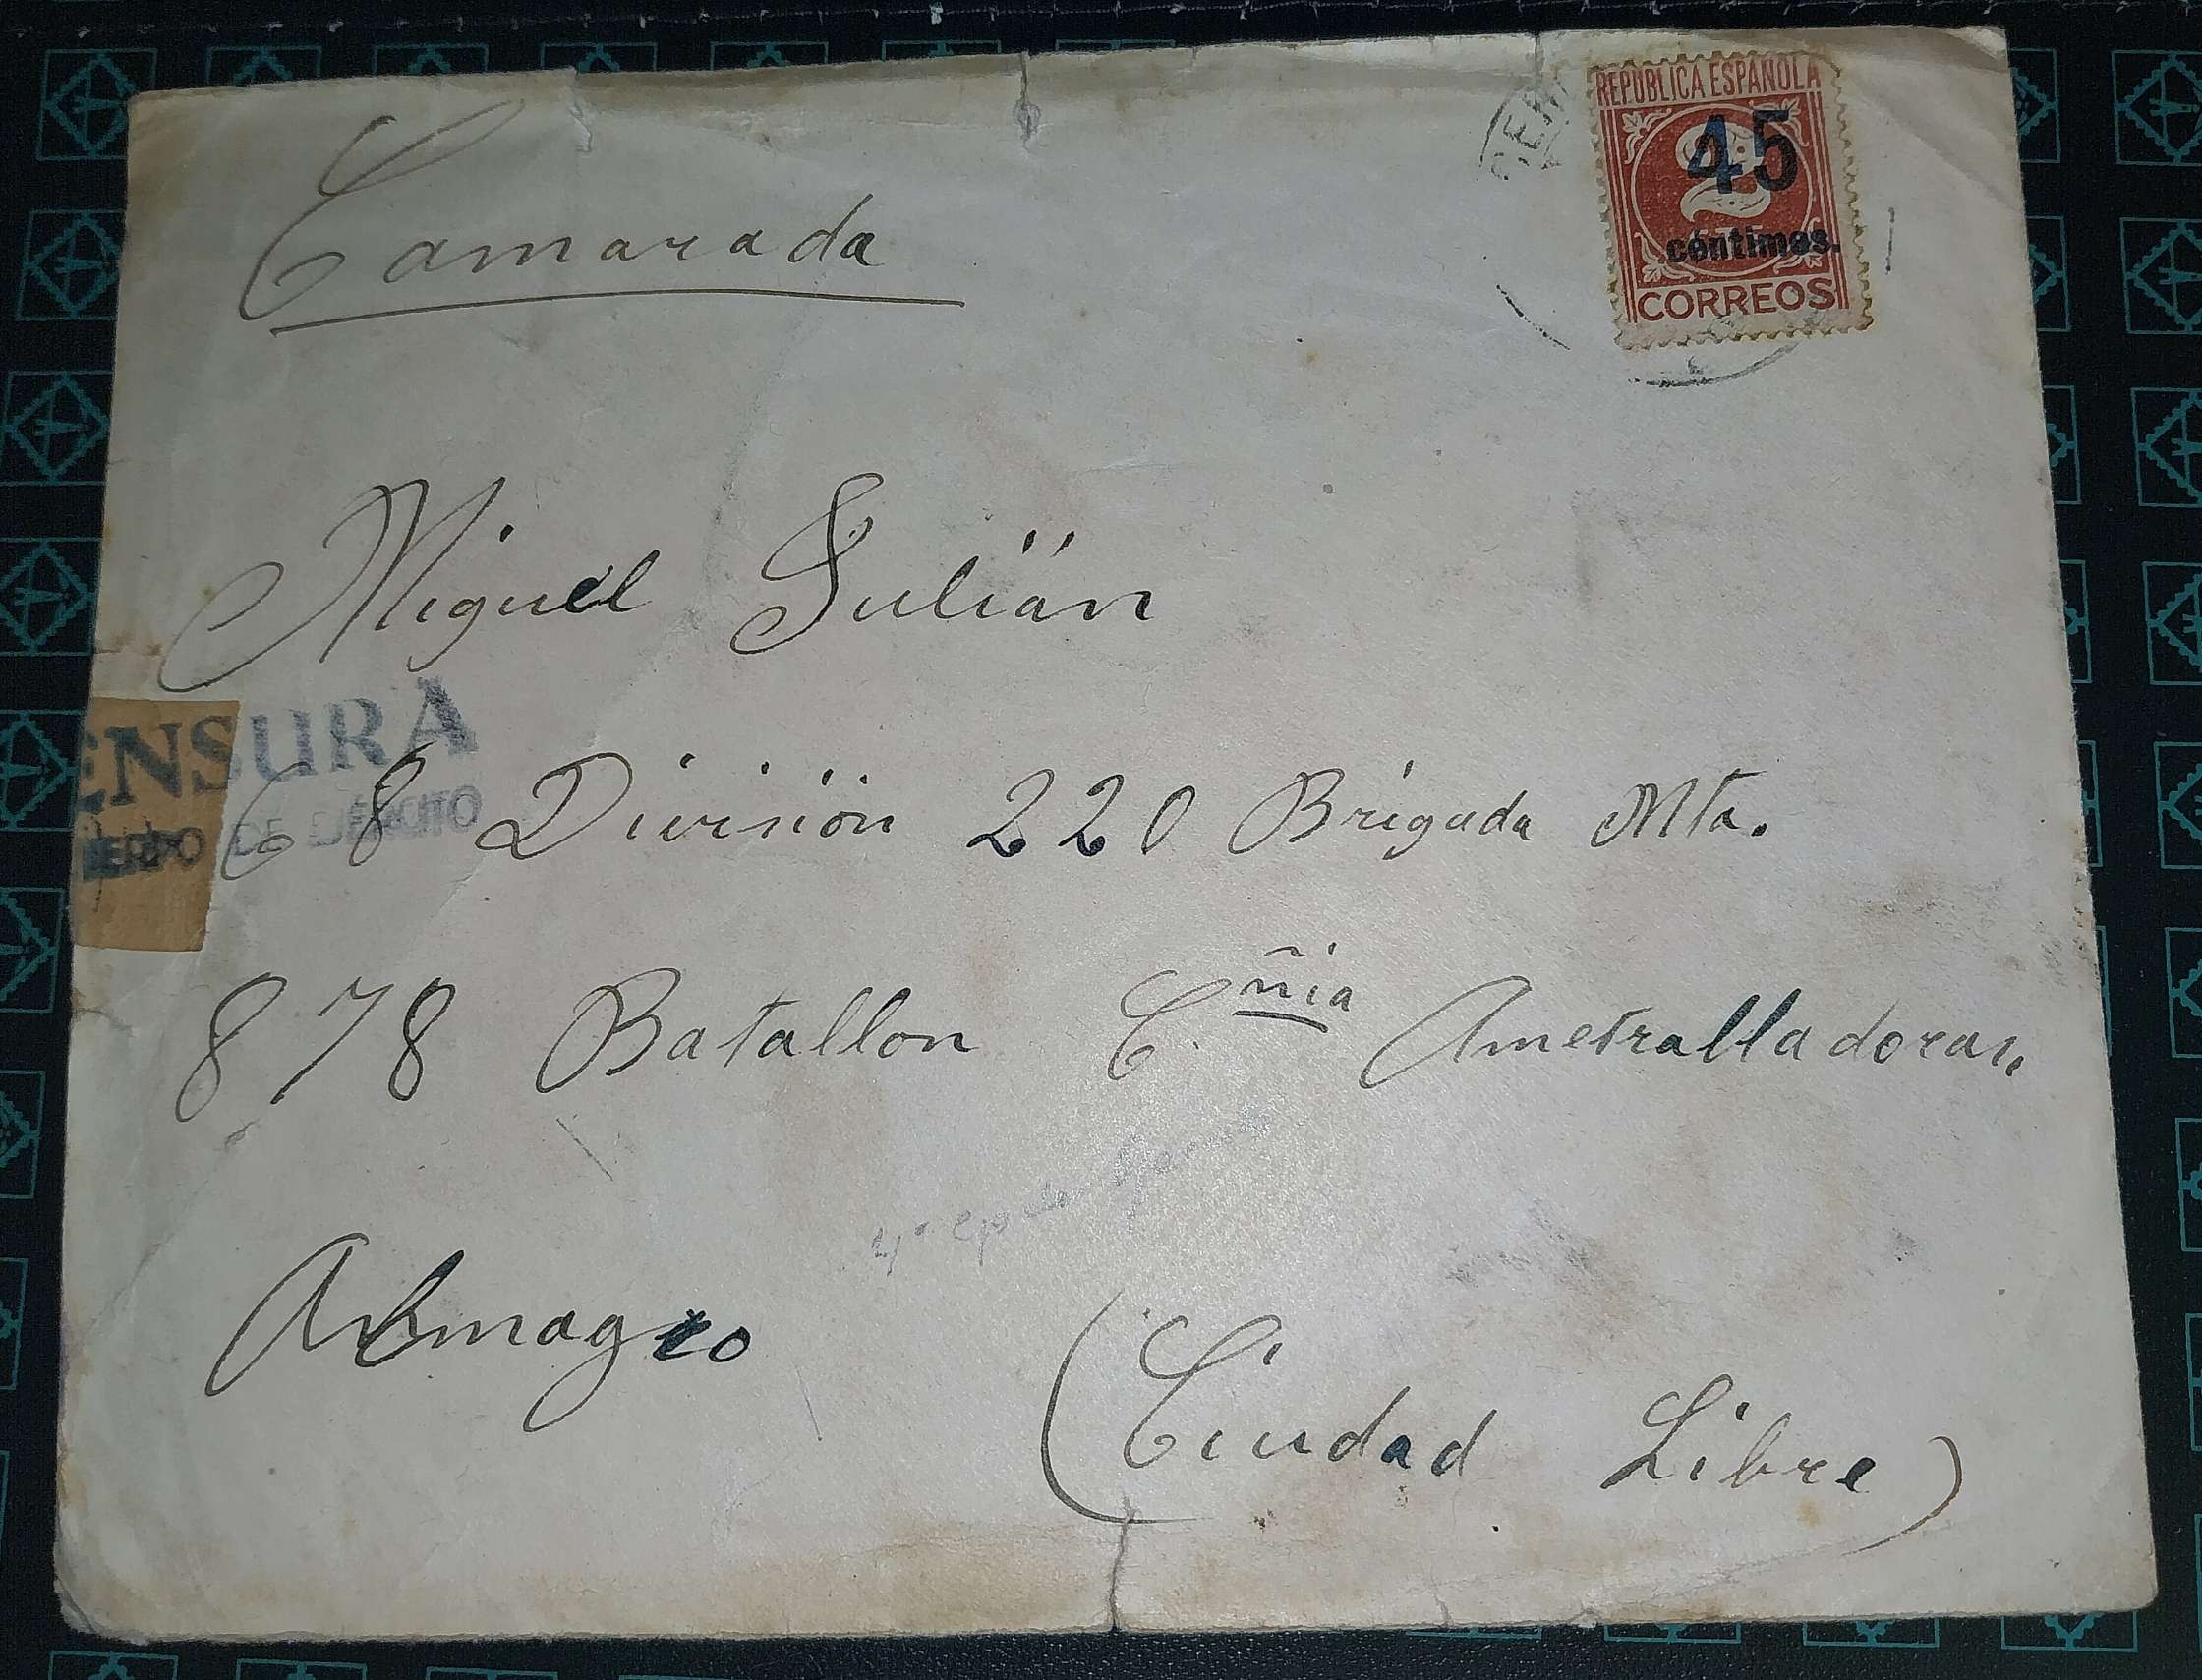 REPUBLICA ESPAÑOLA
45
2
céntimos.
CORREOS
Camarada
Miguel Julián
ENSURA
DE EJERCITO
68 División 220 Brigada Mta.
878 Batallon Cñia Ametralladoras.
4º
Almagro
(Ciudad Libre)